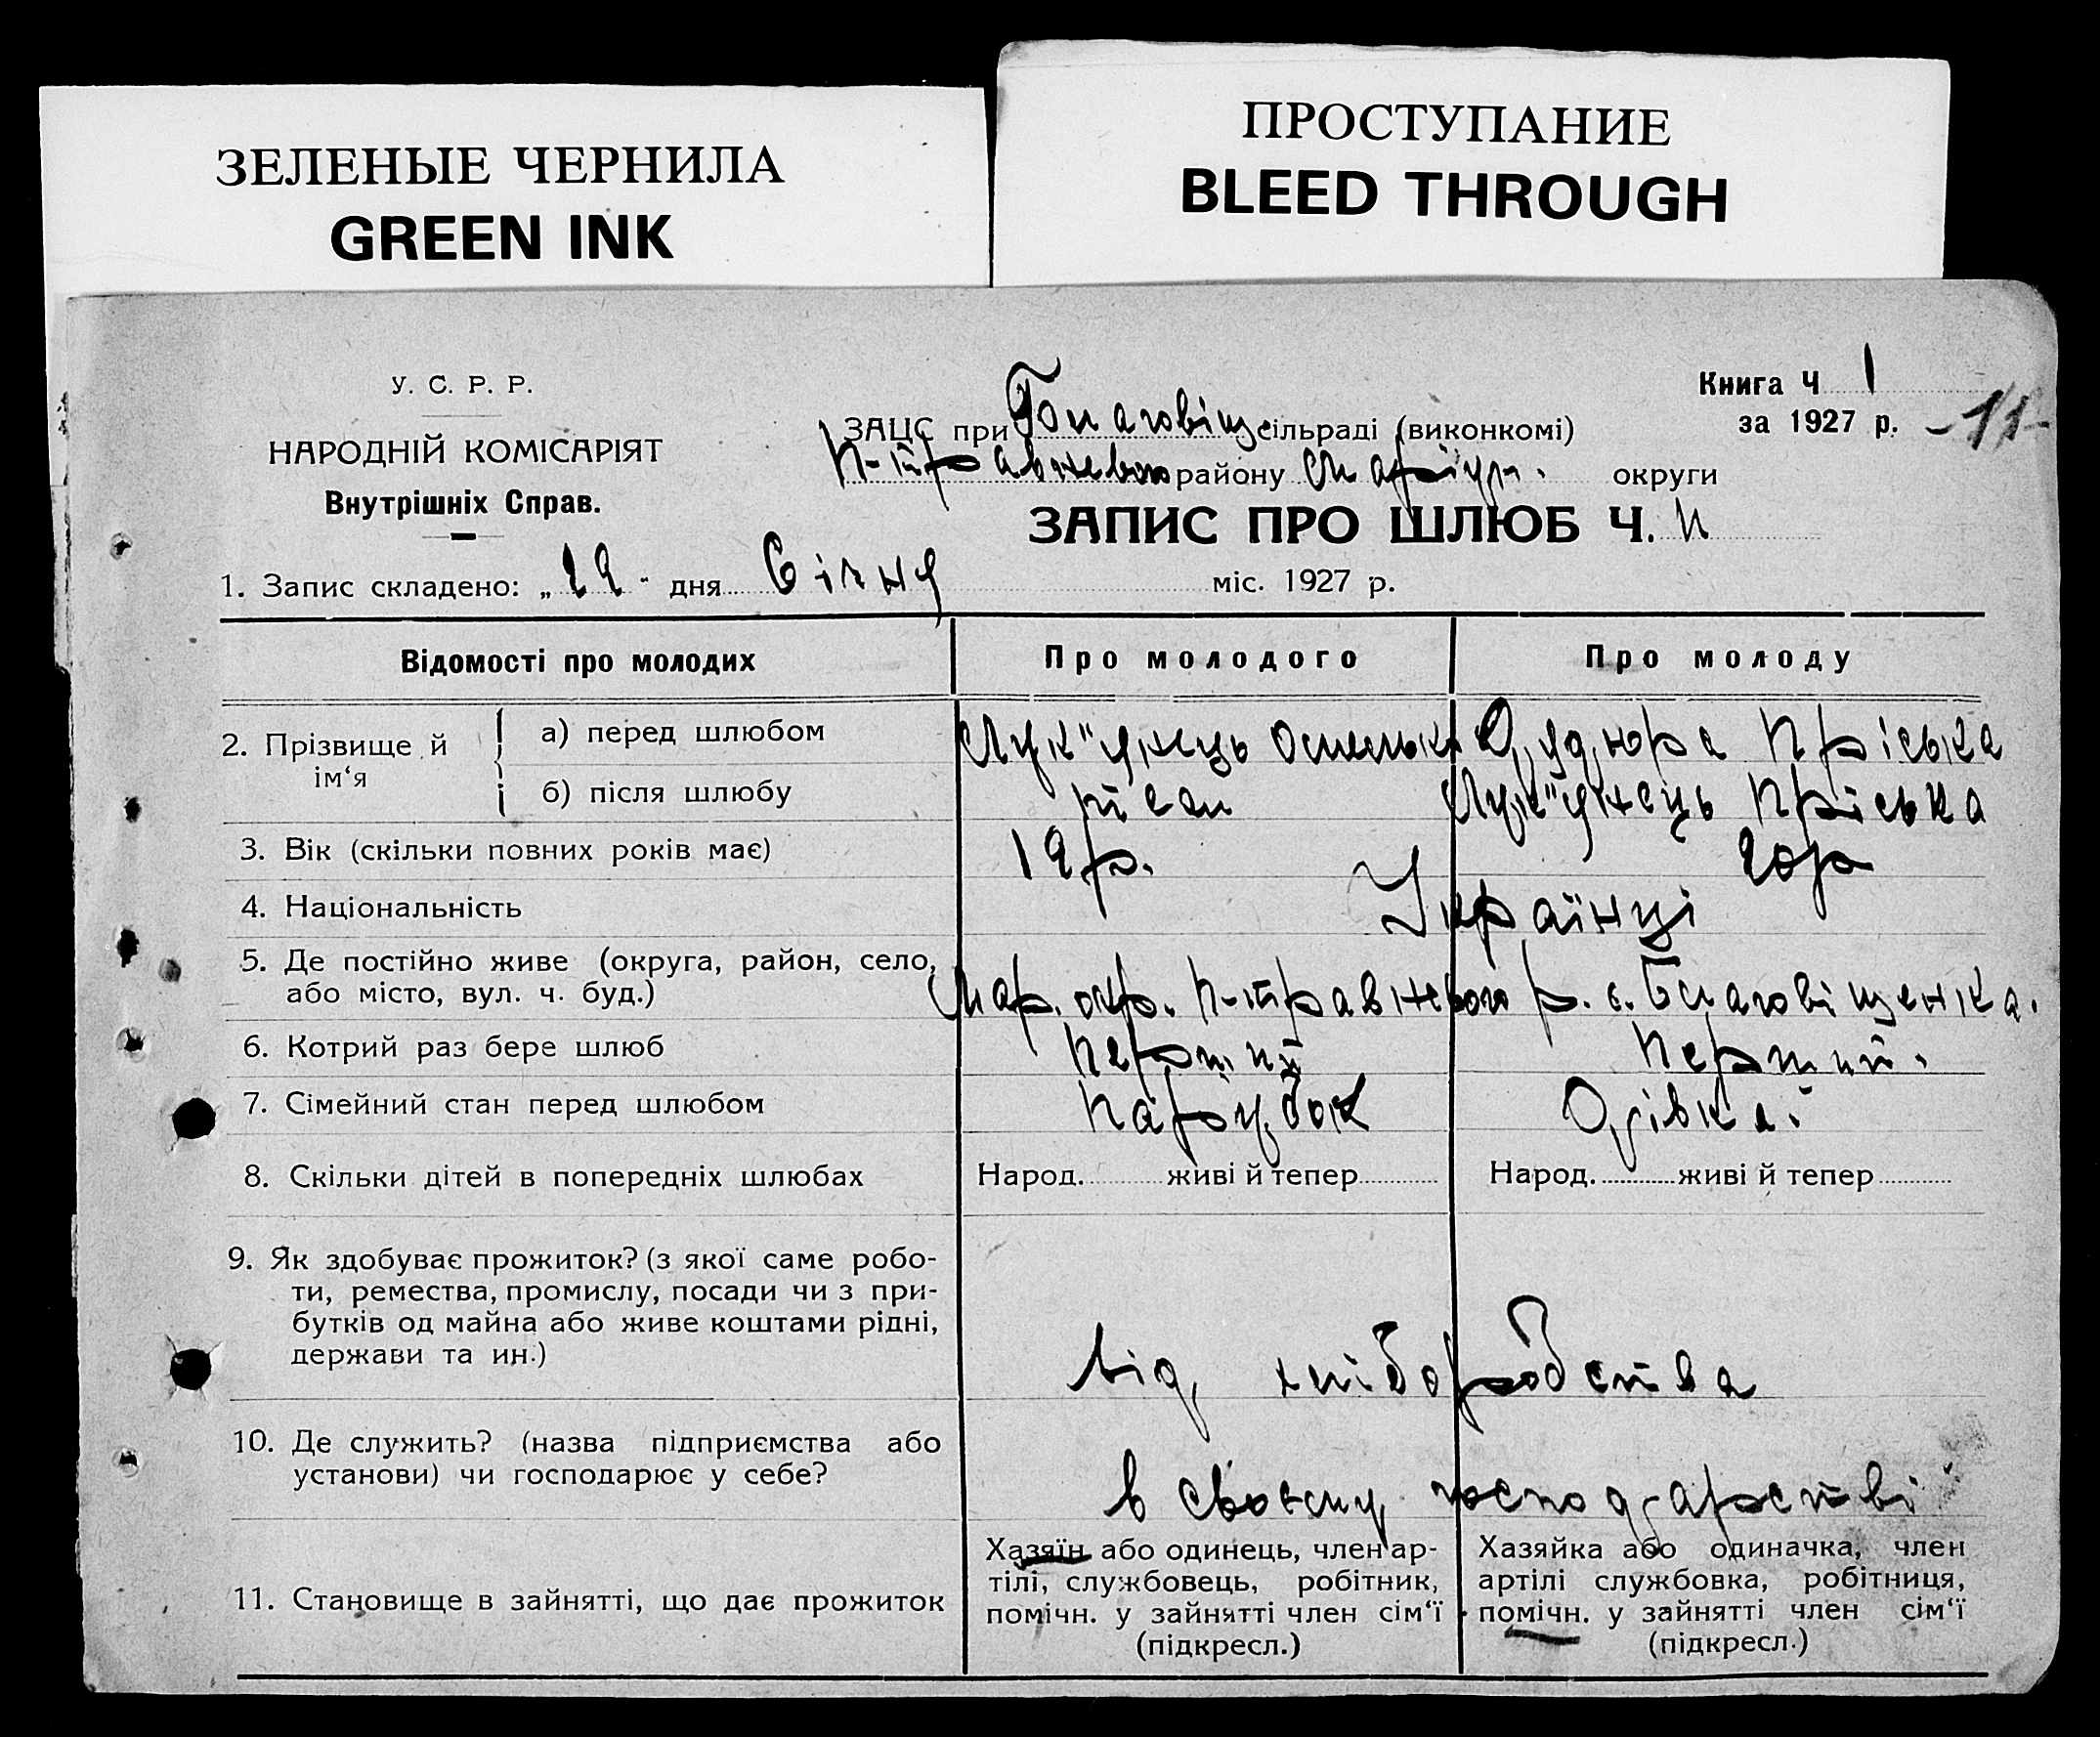 ЗЕЛЕНЫЕ ЧЕРНИЛА
GREEN INK
ПРОСТУПАНИЕ
BLEED THROUGH
У. С. Р. Р.
НАРОДНІЙ КОМІСАРІЯТ
Внутрішніх Справ.
Книга Ч 1
за 1927 р. -11-
ЗАЦС при Благовіщ сільраді (виконкомі)
П-травневого району Маріуп. округи
ЗАПИС ПРО ШЛЮБ Ч.
1. Запис складено: „ " дня Січня міс. 1927 р.
Відомості про молодих Про молодого Про молоду
2. Прізвище й ім‘я
а) перед шлюбом Лук"янець Омелько Дудюра Пріська
б) після шлюбу Лук"янець Пріська
3. Вік (скільки повних років має) р. 20р
4. Національність Українці
5. Де постійно живе (округа, район, село, або місто, вул. ч. буд.) Мар. окр. П-травневого р. с. Благовіщенка.
6. Котрий раз бере шлюб Перший Перший.
7. Сімейний стан перед шлюбом Парубок Дівка
8. Скільки дітей в попередніх шлюбах Народ. живі й тепер Народ. живі й тепер
9. Як здобуває прожиток? (з якої саме робо-
ти, ремества, промислу, посади чи з при-
бутків од майна або живе коштами рідні,
держави та ин.) від хліборобства
10. Де служить? (назва підприємства або
установи) чи господарює у себе? в своєму господарстві
11. Становище в зайнятті, що дає прожиток
Хазяїн або одинець, член ар-
тілі, службовець, робітник,
помічн. у зайнятті член сім‘ї
(підкресл.)
Хазяйка або одиначка, член
артілі службовка, робітниця,
помічн. у зайнятті член сім‘ї
(підкресл.)